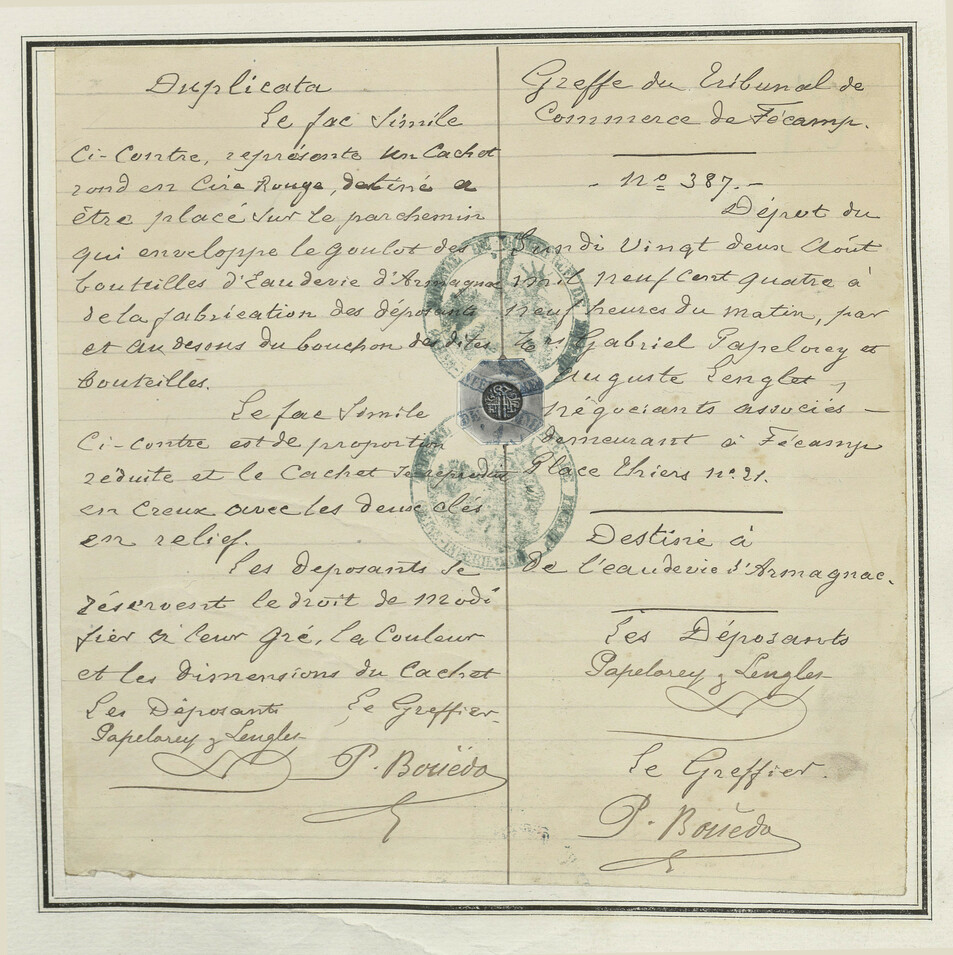 Duplicata
Le fac Simile
Ci-Contre, représente un Cachet
rond en Cire Rouge, destiné a
être placé sur le parchemin
qui enveloppe le goulot des
bouteilles d'Eaudevie d'Armagnac
de la fabrication des déposants
et au desous du bouchon des dites
bouteilles.
Le fac Simile
Ci-Contre est de proportion
reduite et le Cachet se reproduit
en Creux avec les deux clés
en relief.
Les Deposants se
réservent le droit de modi
fier à leur gré, la Couleur
et les dimensions du Cachet
Les Déposants Le Greffier
Papelorey & Lengles
P. Bouëdo
Greffe du Tribunal de
Commerce de Fécamp.
- No 387. -
Dépot du
Lundi Vingt deux Août
mil neuf cent quatre à
neuf heures du matin, par
Gabriel Papelorey et
Auguste Lenglet,
négociants associés -
Demeurant à Fécamp
Place Thiers no. 21.
Destiné à
De l'eaudevie d'Armagnac.
Les Déposants
Papelorey & Lengles
Le Greffier.
P. Bouëdo